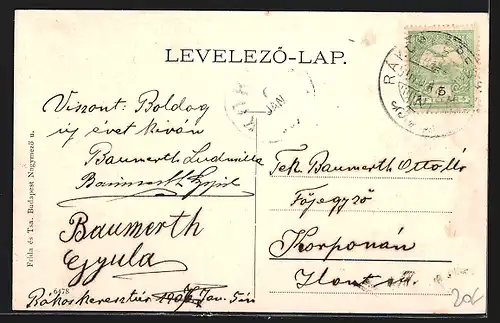 LEVELEZŐ-LAP.
RÁKOS
JAN
Viszont: Boldog
új évet kíván
Baumerth Ludmilla
Baumerth
Baumerth
Gyula
Rákoskeresztúr 1907 Jan. 5én
Tek. Baumerth Ottó úr
Főjegyző
Korponán
Hont m.
Frida és Tsa. Budapest Négymező u.
6178
20